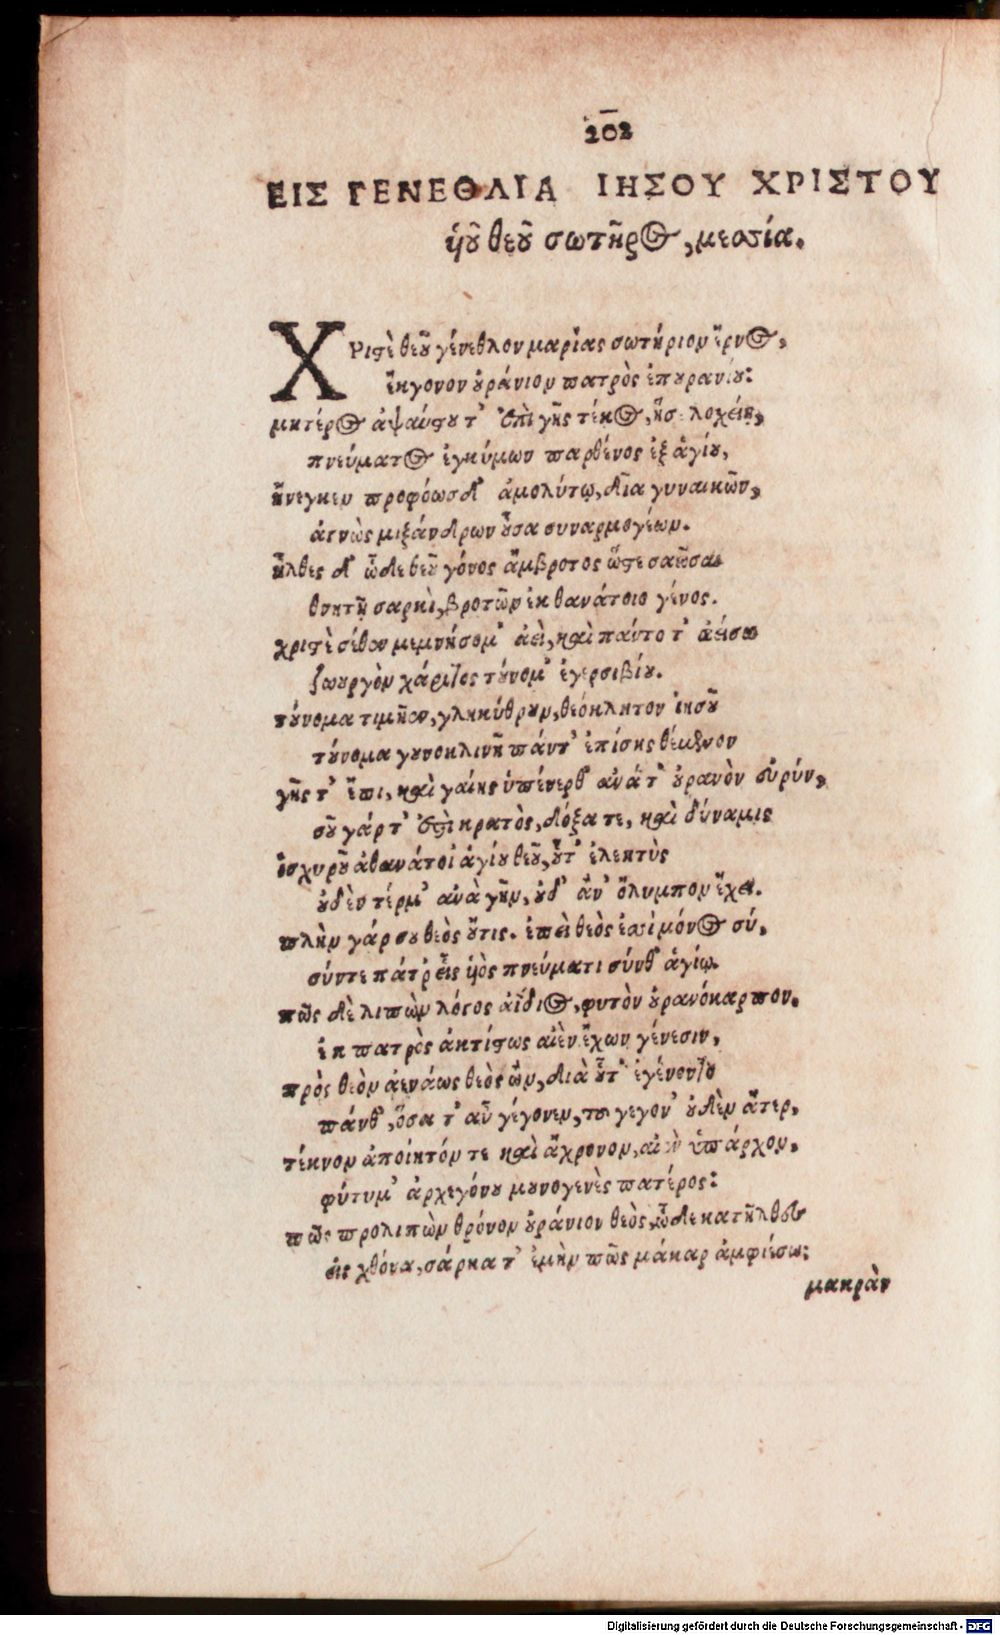 202
ΕΙΣ ΓΕΝΕΘΛΙΑ ΙΗΣΟΥ ΧΡΙΣΤΟΥ
ὑοῦ θεοῦ σωτῆρος, μεσσία.
ΧΡιστὲ θεοῦ γένεθλον μαρίας σωτήριον ἔρνος,
ἔκγονον οὐράνιον πατρὸς ἐπουρανίου:
μητέρος ἀψαύστου τ' ἐπὶ γῆς τέκος, λοχείης,
πνεύματος ἐγκύμων παρθένος ἐξ ἁγίου,
ἤνεγκεν προφόως δ' ἀμολύτῳ, δῖα γυναικῶν,
ἁγνὼς μιξάνδρων οὖσα συναρμογέων.
ἦλθες δ' ὧδε θεοῦ γόνος ἄμβροτος ὥστε σαῶσαι
θνητῇ σαρκὶ, βροτῶν ἐκ θανάτοιο γένος.
χριστὲ σέθεν μεμνήσομ' ἀεὶ, καὶ πάντοτ' ἀείσω
ζωουργὸν χάριτος τοὔνομ' ἐγερσιβίου.
τοὔνομα τιμῆεν, γλυκύθρουν, θεόκλητον ἰησοῦ
τοὔνομα γουνοκλινῆ πάντ' ἐπίσης θέμενον
γῆς τ' ἔπι, καὶ γαίης ὑπένερθ' ἀνά τ' οὐρανὸν εὐρύν,
σοῦ γάρ τ' ἐστὶ κρατὸς, δόξα τε, καὶ δύναμις
ἰσχυροῦ ἀθανάτοι ἁγίου θεοῦ, οὗτ' ἐλεητὺς
οὐδὲν τέρμ' ἀνὰ γῆν, οὐδ' ἀν' ὄλυμπον ἔχει.
πλὴν γάρ σου θεὸς οὔτις. ἐπεὶ θεὸς ἐσσὶ μόνος σύ,
σύντε πάτρ εἷς ὑὸς πνεύματι σύνθ' ἁγίῳ.
πῶς δὲ λιπὼν λόγος ἀΐδιος, φυτὸν οὐρανόκαρπον.
ἐκ πατρὸς ἀκτίστως αἰὲν ἔχων γένεσιν,
πρὸς θεὸν ἀενάως θεὸς ὢν, διὰ οὗτ' ἐγένοντο
πάνθ', ὅσα τ' αὖ γέγονεν, του γεγον' οὐδὲν ἄτερ,
τέκνον ἀποίητόν τε καὶ ἄχρονον, αἰὲν ὑπάρχον,
φύτυμ' ἀρχεγόνου μουνογενὲς πατέρος:
πῶς προλιπὼν θρόνον οὐράνιον θεὸς, ὧδε κατῆλθες
εἰς χθόνα, σάρκα τ' ἐμὴν πῶς μάκαρ ἀμφιέσω;
μακρὰν
Digitalisierung gefördert durch die Deutsche Forschungsgemeinschaft - DFG